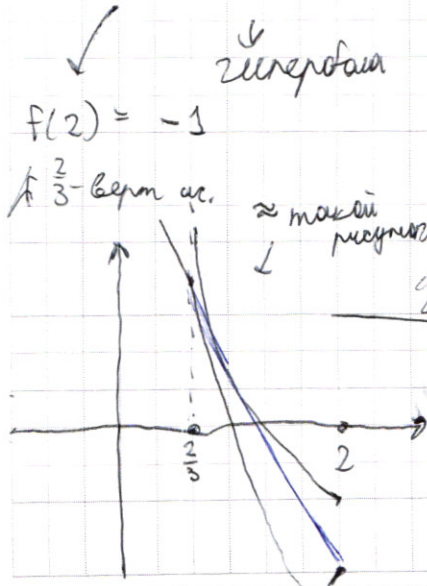 гипербола
f(2) = -1
2/3 - верт ас.
≈ такой
рисунок
2/3
2